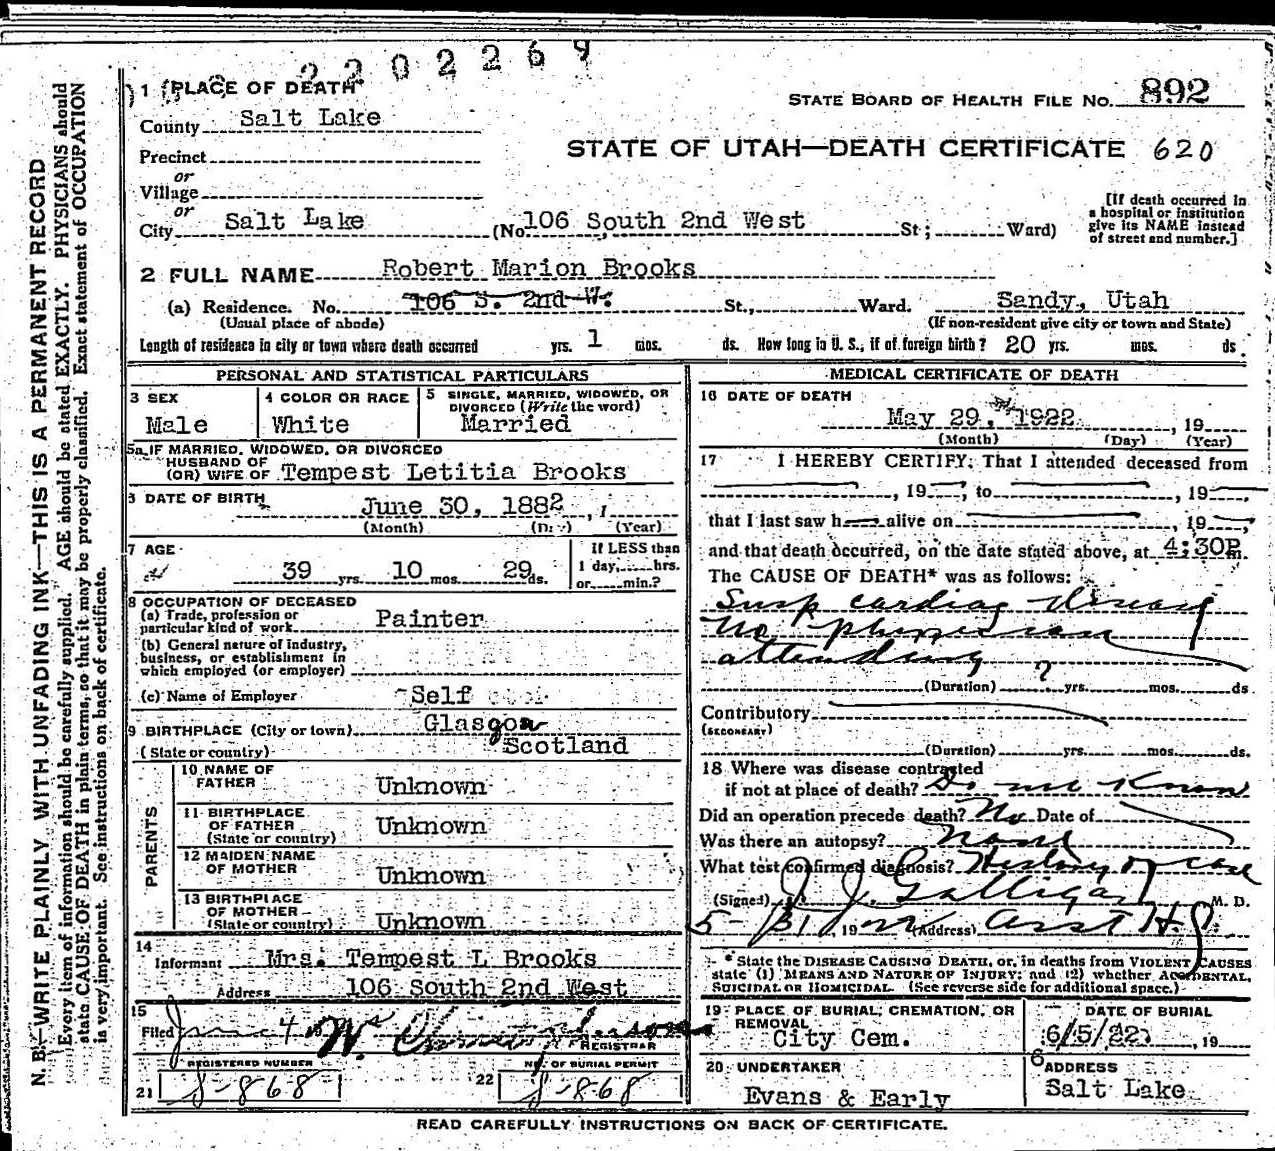 2 2 0 2 2 6 9
1 PLACE OF DEATH
STATE BOARD OF HEALTH FILE NO. 892
County Salt Lake
STATE OF UTAH—DEATH CERTIFICATE 620
Precinct
or
Village
or
City Salt Lake (No. 106 South 2nd West St; Ward)
[If death occurred in
a hospital or institution
give its NAME instead
of street and number.]
2 FULL NAME Robert Marion Brooks
(a) Residence. No. 106 S. 2nd W. St., Ward. Sandy, Utah
(Usual place of abode) (If non-resident give city or town and State)
Length of residence in city or town where death occurred yrs. 1 mos. ds. How long in U. S., if of foreign birth? 20 yrs. mos. ds.
PERSONAL AND STATISTICAL PARTICULARS
3 SEX
Male
4 COLOR OR RACE
White
5 SINGLE, MARRIED, WIDOWED, OR
DIVORCED (Write the word)
Married
5a IF MARRIED, WIDOWED, OR DIVORCED
HUSBAND OF
(OR) WIFE OF Tempest Letitia Brooks
6 DATE OF BIRTH June 30, 1882, 1
(Month) (Day) (Year)
7 AGE
39 yrs. 10 mos. 29 ds.
If LESS than
1 day, hrs.
or min.?
8 OCCUPATION OF DECEASED
(a) Trade, profession or
particular kind of work Painter
(b) General nature of industry,
business, or establishment in
which employed (or employer)
(c) Name of Employer Self
9 BIRTHPLACE (City or town) Glasgow
(State or country) Scotland
PARENTS
10 NAME OF
FATHER Unknown
11 BIRTHPLACE
OF FATHER
(State or country) Unknown
12 MAIDEN NAME
OF MOTHER Unknown
13 BIRTHPLACE
OF MOTHER
(State or country) Unknown
14
Informant Mrs. Tempest L Brooks
Address 106 South 2nd West
15
Filed June 4 W.
REGISTRAR
REGISTERED NUMBER
21 J-868
NO. OF BURIAL PERMIT
22 J-868
MEDICAL CERTIFICATE OF DEATH
16 DATE OF DEATH
May 29, 1922, 19
(Month) (Day) (Year)
17 I HEREBY CERTIFY, That I attended deceased from
, 19 , to , 19
that I last saw h alive on , 19 ,
and that death occurred, on the date stated above, at 4:30P m.
The CAUSE OF DEATH* was as follows:
Susp cardiac disease
no physician
attending
(Duration) ? yrs. mos. ds
Contributory
(SECONDARY)
(Duration) yrs. mos. ds.
18 Where was disease contracted
if not at place of death? Do not Know
Did an operation precede death? No Date of
Was there an autopsy? None
What test confirmed diagnosis? History of case
(Signed) J. J. Galligan M. D.
5-31, 1922 (Address) Asst H.O.
* State the DISEASE CAUSING DEATH, or, in deaths from VIOLENT CAUSES
state (1) MEANS AND NATURE OF INJURY; and (2) whether ACCIDENTAL,
SUICIDAL OR HOMICIDAL. (See reverse side for additional space.)
19 PLACE OF BURIAL, CREMATION, OR
REMOVAL
City Cem.
DATE OF BURIAL
6/5/22, 19
20 UNDERTAKER
Evans & Early
6
ADDRESS
Salt Lake
READ CAREFULLY INSTRUCTIONS ON BACK OF CERTIFICATE.
N. B.—WRITE PLAINLY, WITH UNFADING INK—THIS IS A PERMANENT RECORD
Every item of information should be carefully supplied. AGE should be stated EXACTLY. PHYSICIANS should
state CAUSE OF DEATH in plain terms, so that it may be properly classified. Exact statement of OCCUPATION
is very important. See instructions on back of certificate.